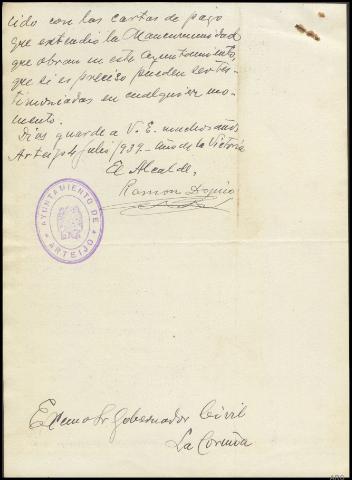 cido con las cartas de pago
que extendió la Mancomunidad
que obran en este Ayuntamiento,
que si es preciso pueden ser tes-
timoniadas en cualquier mo-
mento.
Dios guarde a V. E. muchos años
Arteijo Julio 1939 - año de la Victoria
El Alcalde,
Ramon
AYUNTAMIENTO DE
ARTEIJO
Excmo Sr Gobernador Civil
La Coruña